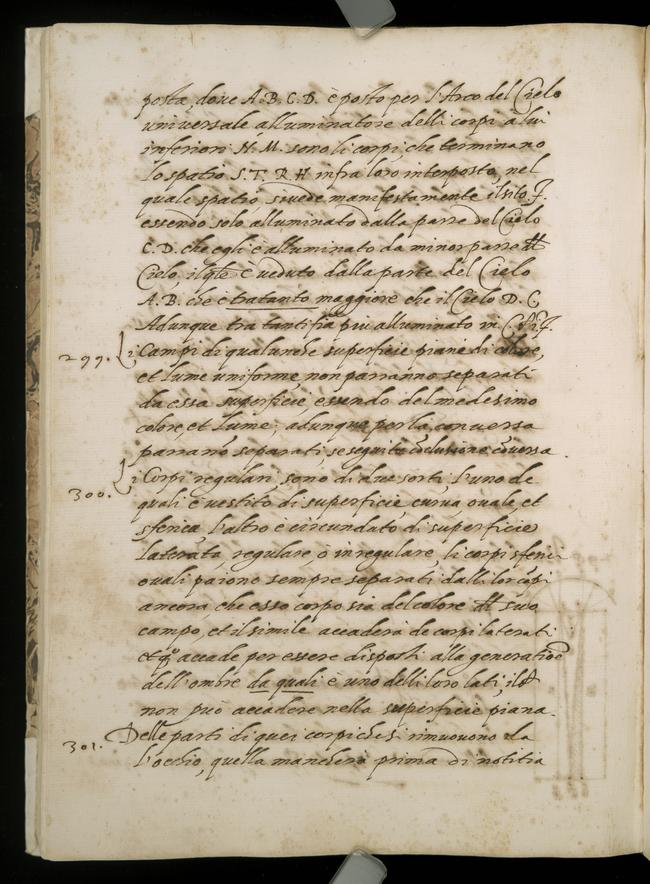 posta, doue A. B. C. D. è posto per l'Arco del Cielo
uniuersale alluminatore delli corpi à lui
inferiori N. M. sono li corpi, che terminano
lo spatio S. T. R. H infra loro interposto, nel
quale spatio si uede manifestamente il sito F.
essendo solo alluminato dalla parte del Cielo
C. D. che egli è alluminato da minor parte
Cielo, il qle è ueduto dalla parte del Cielo
A. B. che è tratanto maggiore che il Cielo D. C.
Adunque tra tanti fia piu alluminato in
299. i Campi di qualunche superficie piane di colore,
et lume uniforme, non parranno separati
da essa superficie, essendo del medesimo
colore, et lume; adunque per la conuersa
parrano separati, se seguita conclusione conuersa.
300. i Corpi regulari sono di due sorti l'uno de
quali è uestito di superficie curua ouale, et
sferica l'altro è circundato di superficie
laterata, regulare, ò inregulare, li corpi sferici
ouali paiono sempre separati dalli lor cāpi
ancora, che esso corpo sia del colore suo
campo, et il simile accaderà de corpi laterati
et qo accade per essere disposti alla generatiōe
dell'ombre da quali è uno delli loro lati, il
non può accadere nella superficie piana.
301. Delle parti di quei corpi che si rimuouono da
l'occhio, quella mancherà prima di notitia